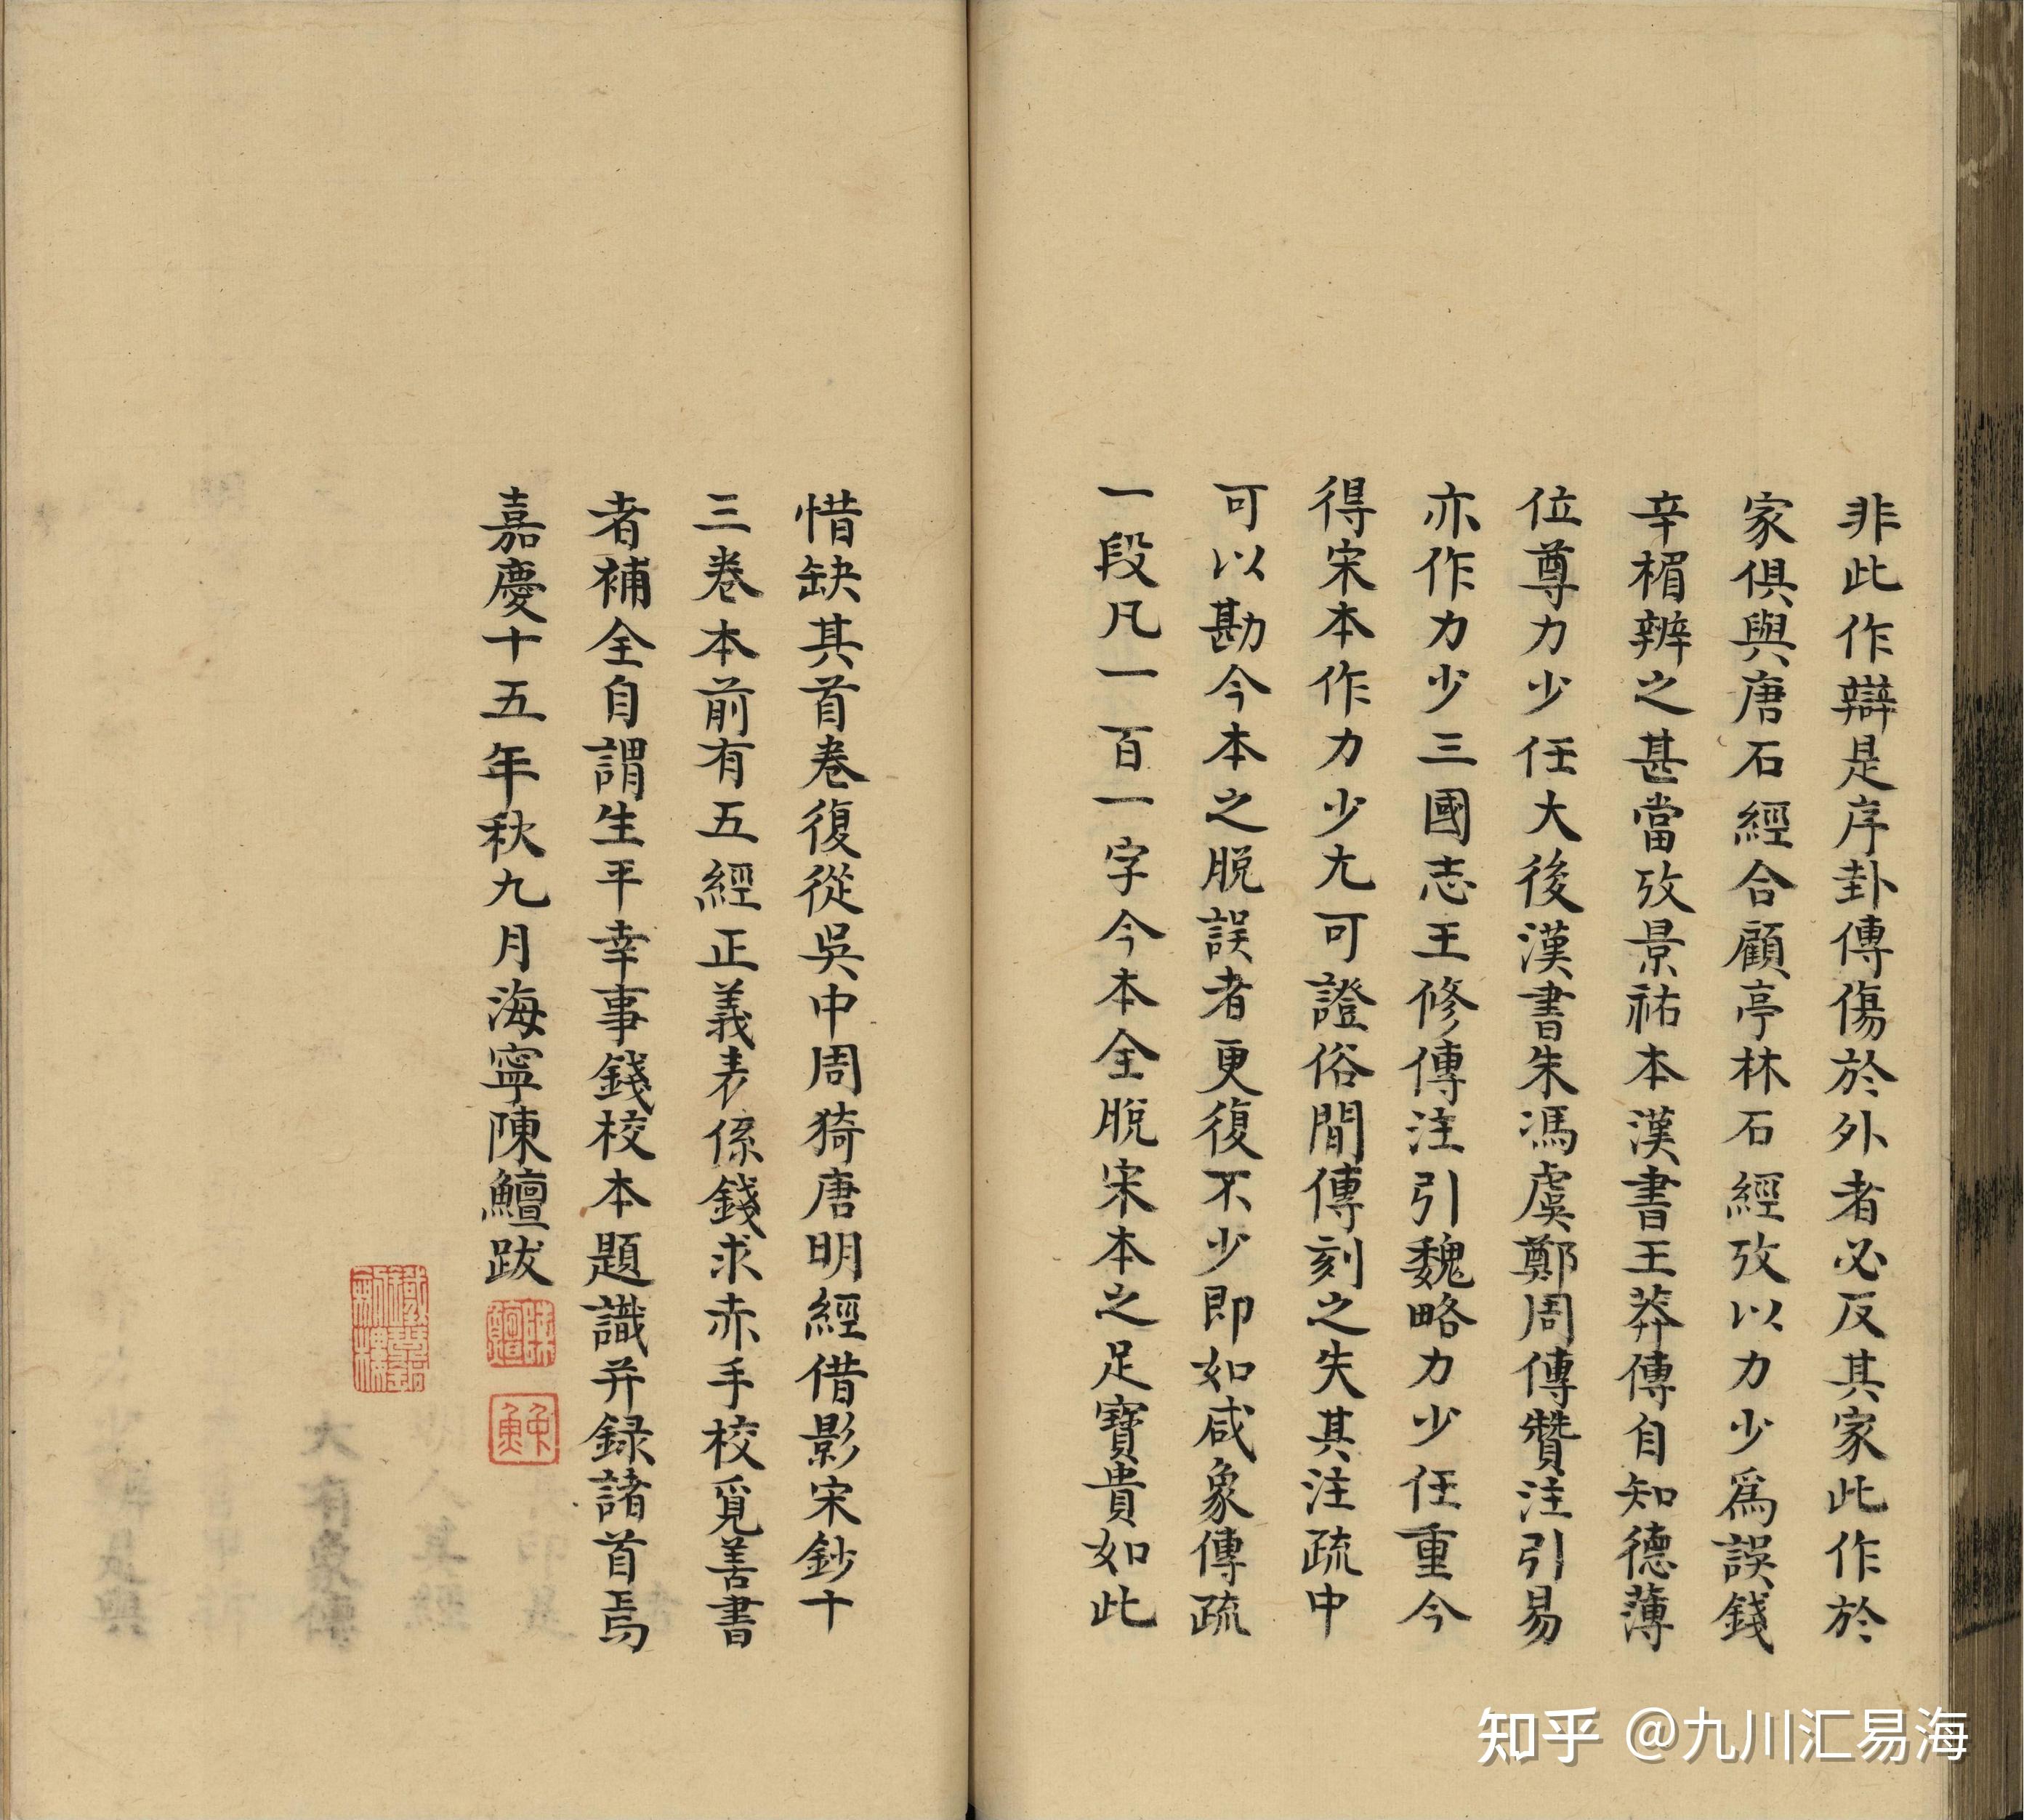 非此作辯是序卦傳傷於外者必反其家此作於
家俱與唐石經合顧亭林石經攷以力少爲誤錢
辛楣辨之甚當攷景祐本漢書王莽傳自知德薄
位尊力少任大後漢書朱馮虞鄭周傳贊注引易
亦作力少三國志王修傳注引魏略力少任重今
得宋本作力少尢可證俗間傳刻之失其注疏中
可以勘今本之脱誤者更復不少即如咸象傳疏
一段凡一百一字今本全脱宋本之足寶貴如此
惜缺其首卷復從吳中周猗唐明經借影宋鈔十
三卷本前有五經正義表係錢求赤手校覓善書
者補全自謂生平幸事錢校本題識并録諸首焉
嘉慶十五年秋九月海寧陳鱣跋
陳鱣
知乎 @九川汇易海